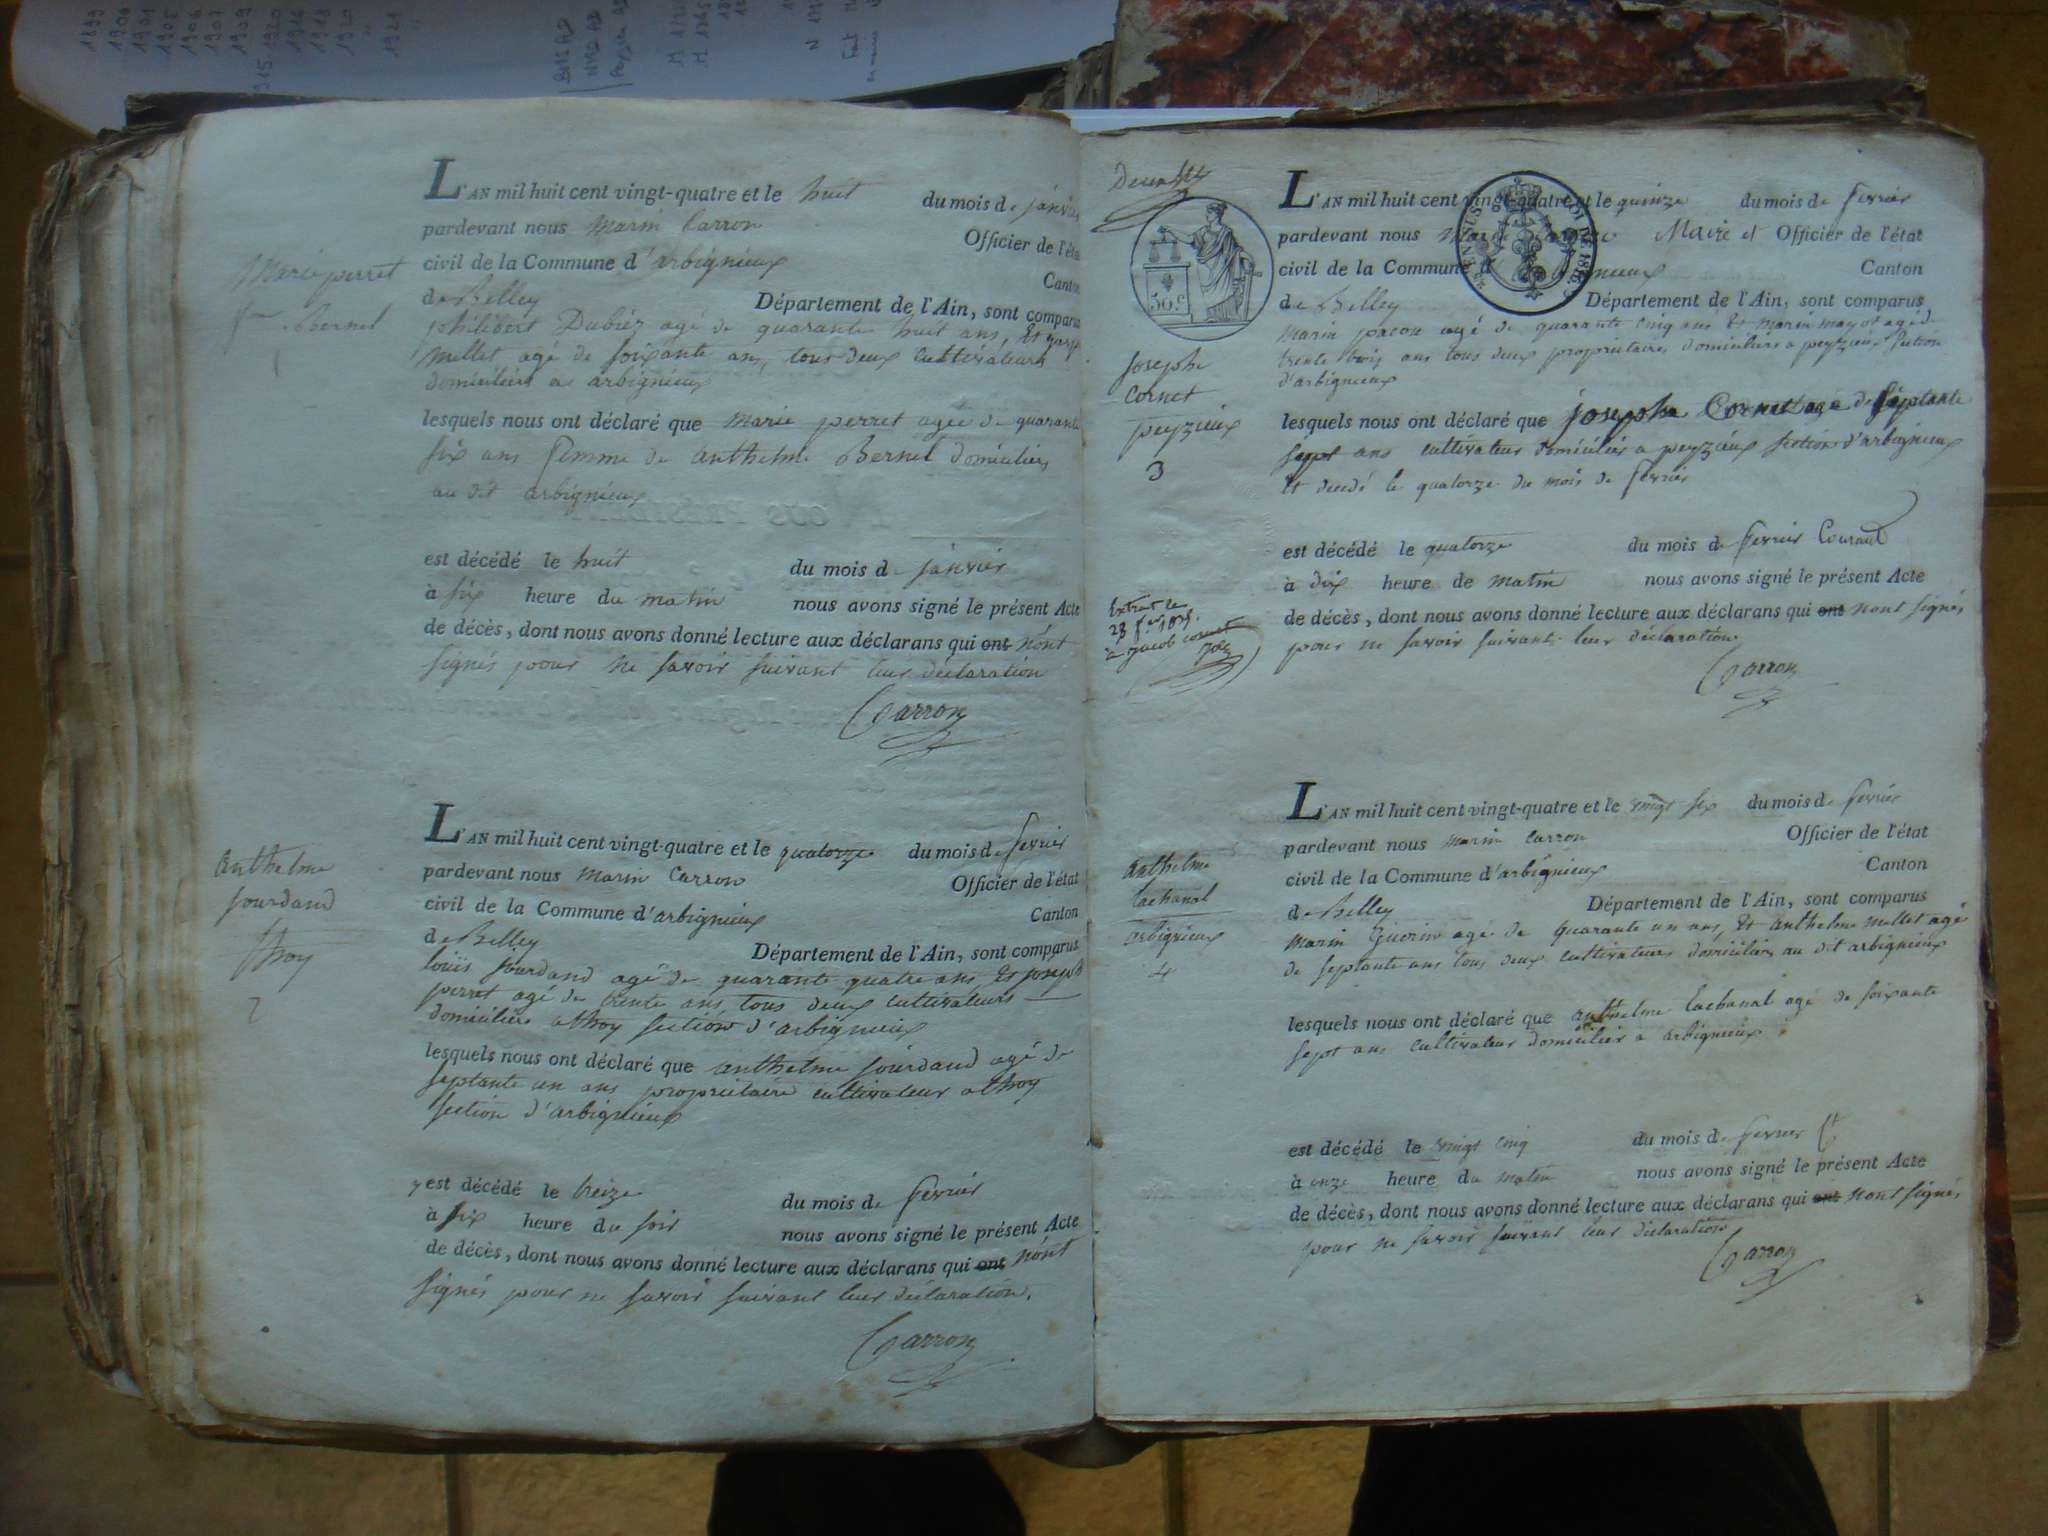 1893
1900
1901
1905
1906
1907
1909
1915.1920
1918
1920
1921
Marie perret
f.me Bernel
1
L'AN mil huit cent vingt-quatre et le huit du mois de janvier
pardevant nous Marin Carron
Officier de l'état
civil de la Commune d'arbignieux
Canton
de Belley Département de l'Ain, sont comparus
philibert Dubiez agé de quarante huit ans, Et
millet agé de soixante ans, tous deux cultivateurs
domiciliés a arbignieux
lesquels nous ont déclaré que marie perret agée de quarante
six ans femme de anthelme Bernel domiciliés
au dit arbignieux
est décédé le huit du mois de janvier
à six heure du matin nous avons signé le présent Acte
de décès, dont nous avons donné lecture aux déclarans qui ont nont
signés pour ne savoir suivant leur déclaration
Carron
anthelme
jourdand
thoy
2
L'AN mil huit cent vingt-quatre et le quatorze du mois de fevrier
pardevant nous Marin Carron Officier de l'état
civil de la Commune d'arbignieux Canton
de Belley Département de l'Ain, sont comparus
louis jourdand agé de quarante quatre ans Et joseph
perret agé de trente ans, tous deux cultivateurs
domiciliés a thoy section d'arbignieux
lesquels nous ont déclaré que anthelme jourdand agé de
septante un ans propriétaire cultivateur a thoy
section d'arbignieux
y est décédé le treize du mois de fevrier
à six heure du soir nous avons signé le présent Acte
de décès, dont nous avons donné lecture aux déclarans qui ont nont
signés pour ne savoir suivant leur déclaration.
Carron
50 c
LOI DE 1816
josephe
Cornet
peyzieux
3
L'AN mil huit cent vingt-quatre et le quinze du mois de fevrier
pardevant nous Maire et Officier de l'état
civil de la Commune d' Canton
de Belley Département de l'Ain, sont comparus
Marin pacou agé de quarante cinq ans Et marin mayot agé de
trente trois ans tous deux propriétaires domiciliés a peyzieux section
d'arbignieux
lesquels nous ont déclaré que josephe Cornet agé de septante
sept ans cultivateur domicilié a peyzieux section d'arbignieux
Et decedé le quatorze du mois de fevrier
est décédé le quatorze du mois de fevrier Courant
à dix heure de matin nous avons signé le présent Acte
de décès, dont nous avons donné lecture aux déclarans qui ont nont signés
pour ne savoir suivant leur déclaration
Carron
Extrait le
à jacob cornet
anthelme
Lachanal
arbignieux
4
L'AN mil huit cent vingt-quatre et le vingt six du mois de fevrier
pardevant nous marin carron Officier de l'état
civil de la Commune d'arbignieux Canton
de Belley Département de l'Ain, sont comparus
Marin Guerin agé de quarante un ans, Et anthelme millet agé
de septante ans tous deux cultivateurs domiciliés au dit arbignieux
lesquels nous ont déclaré que anthelme Lachanal agé de soixante
sept ans cultivateur domicilié a arbignieux
est décédé le vingt cinq du mois de fevrier
à onze heure du matin nous avons signé le présent Acte
de décès, dont nous avons donné lecture aux déclarans qui ont nont signés
pour ne savoir suivant leur déclaration
Carron